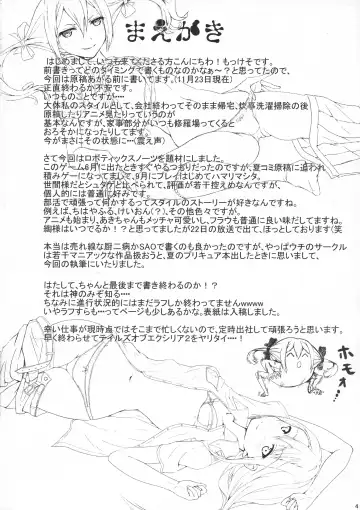 まえがき
はじめまして、いつも来てくださる方こんにちわ！もっけそです。
前書きってどのタイミングで書くものなのかなぁ～？と思ってたので、
今回は原稿あがる前に書いてます。(11月23日現在)
正直終わるか不安です。
いつものことですが・・・
大体私のスタイルとして、会社終わってそのまま帰宅、炊事洗濯掃除の後
原稿したりアニメ見たりっていうのが
基本なんですが、家事部分がいつも修羅場ってくると
おろそかになったりしてます。
今がまさにその状態に・・・(震え声)
さて今回はロボティックスノーツを題材にしました。
このゲーム6月に出たときすぐやるつもりだったのですが、夏コミ原稿に追われ
積みゲーになってまして、9月にプレイはじめてハマリマシタ。
世間様だとシュタゲと比べられて、評価が若干控えめなんですが、
個人的には普通に好みです。
部活で頑張って何かするってスタイルのストーリーが好きなんですね。
例えば、ちはやふる、けいおん（？）、その他色々ですが。
アニメも始まり、あきちゃんもメッチャ可愛いし、フラウも普通に良い味だしてますね。
綯様はいつでるか？！と思ってましたが22日の放送で出て、ほっとしております(笑
本当は売れ線な厨二病かSAOで書くのも良かったのですが、やっぱウチのサークル
は若干マニアックな作品扱おうと、夏のプリキュア本出したときに思いまして、
今回の執筆にいたりました。
はたして、ちゃんと最後まで書き終わるのか！？
それは神のみぞ知る・・・・
ちなみに進行状況的にはまだラフしか終わってませんwwww
いやラフすらも・・・ってページも少しあるかな。表紙は入稿しました。
辛い仕事が現時点ではそこまで忙しくないので、定時出社して頑張ろうと思います。
早く終わらせてテイルズオブエクシリア2をヤリタイ・・・！
ホモォ…
4